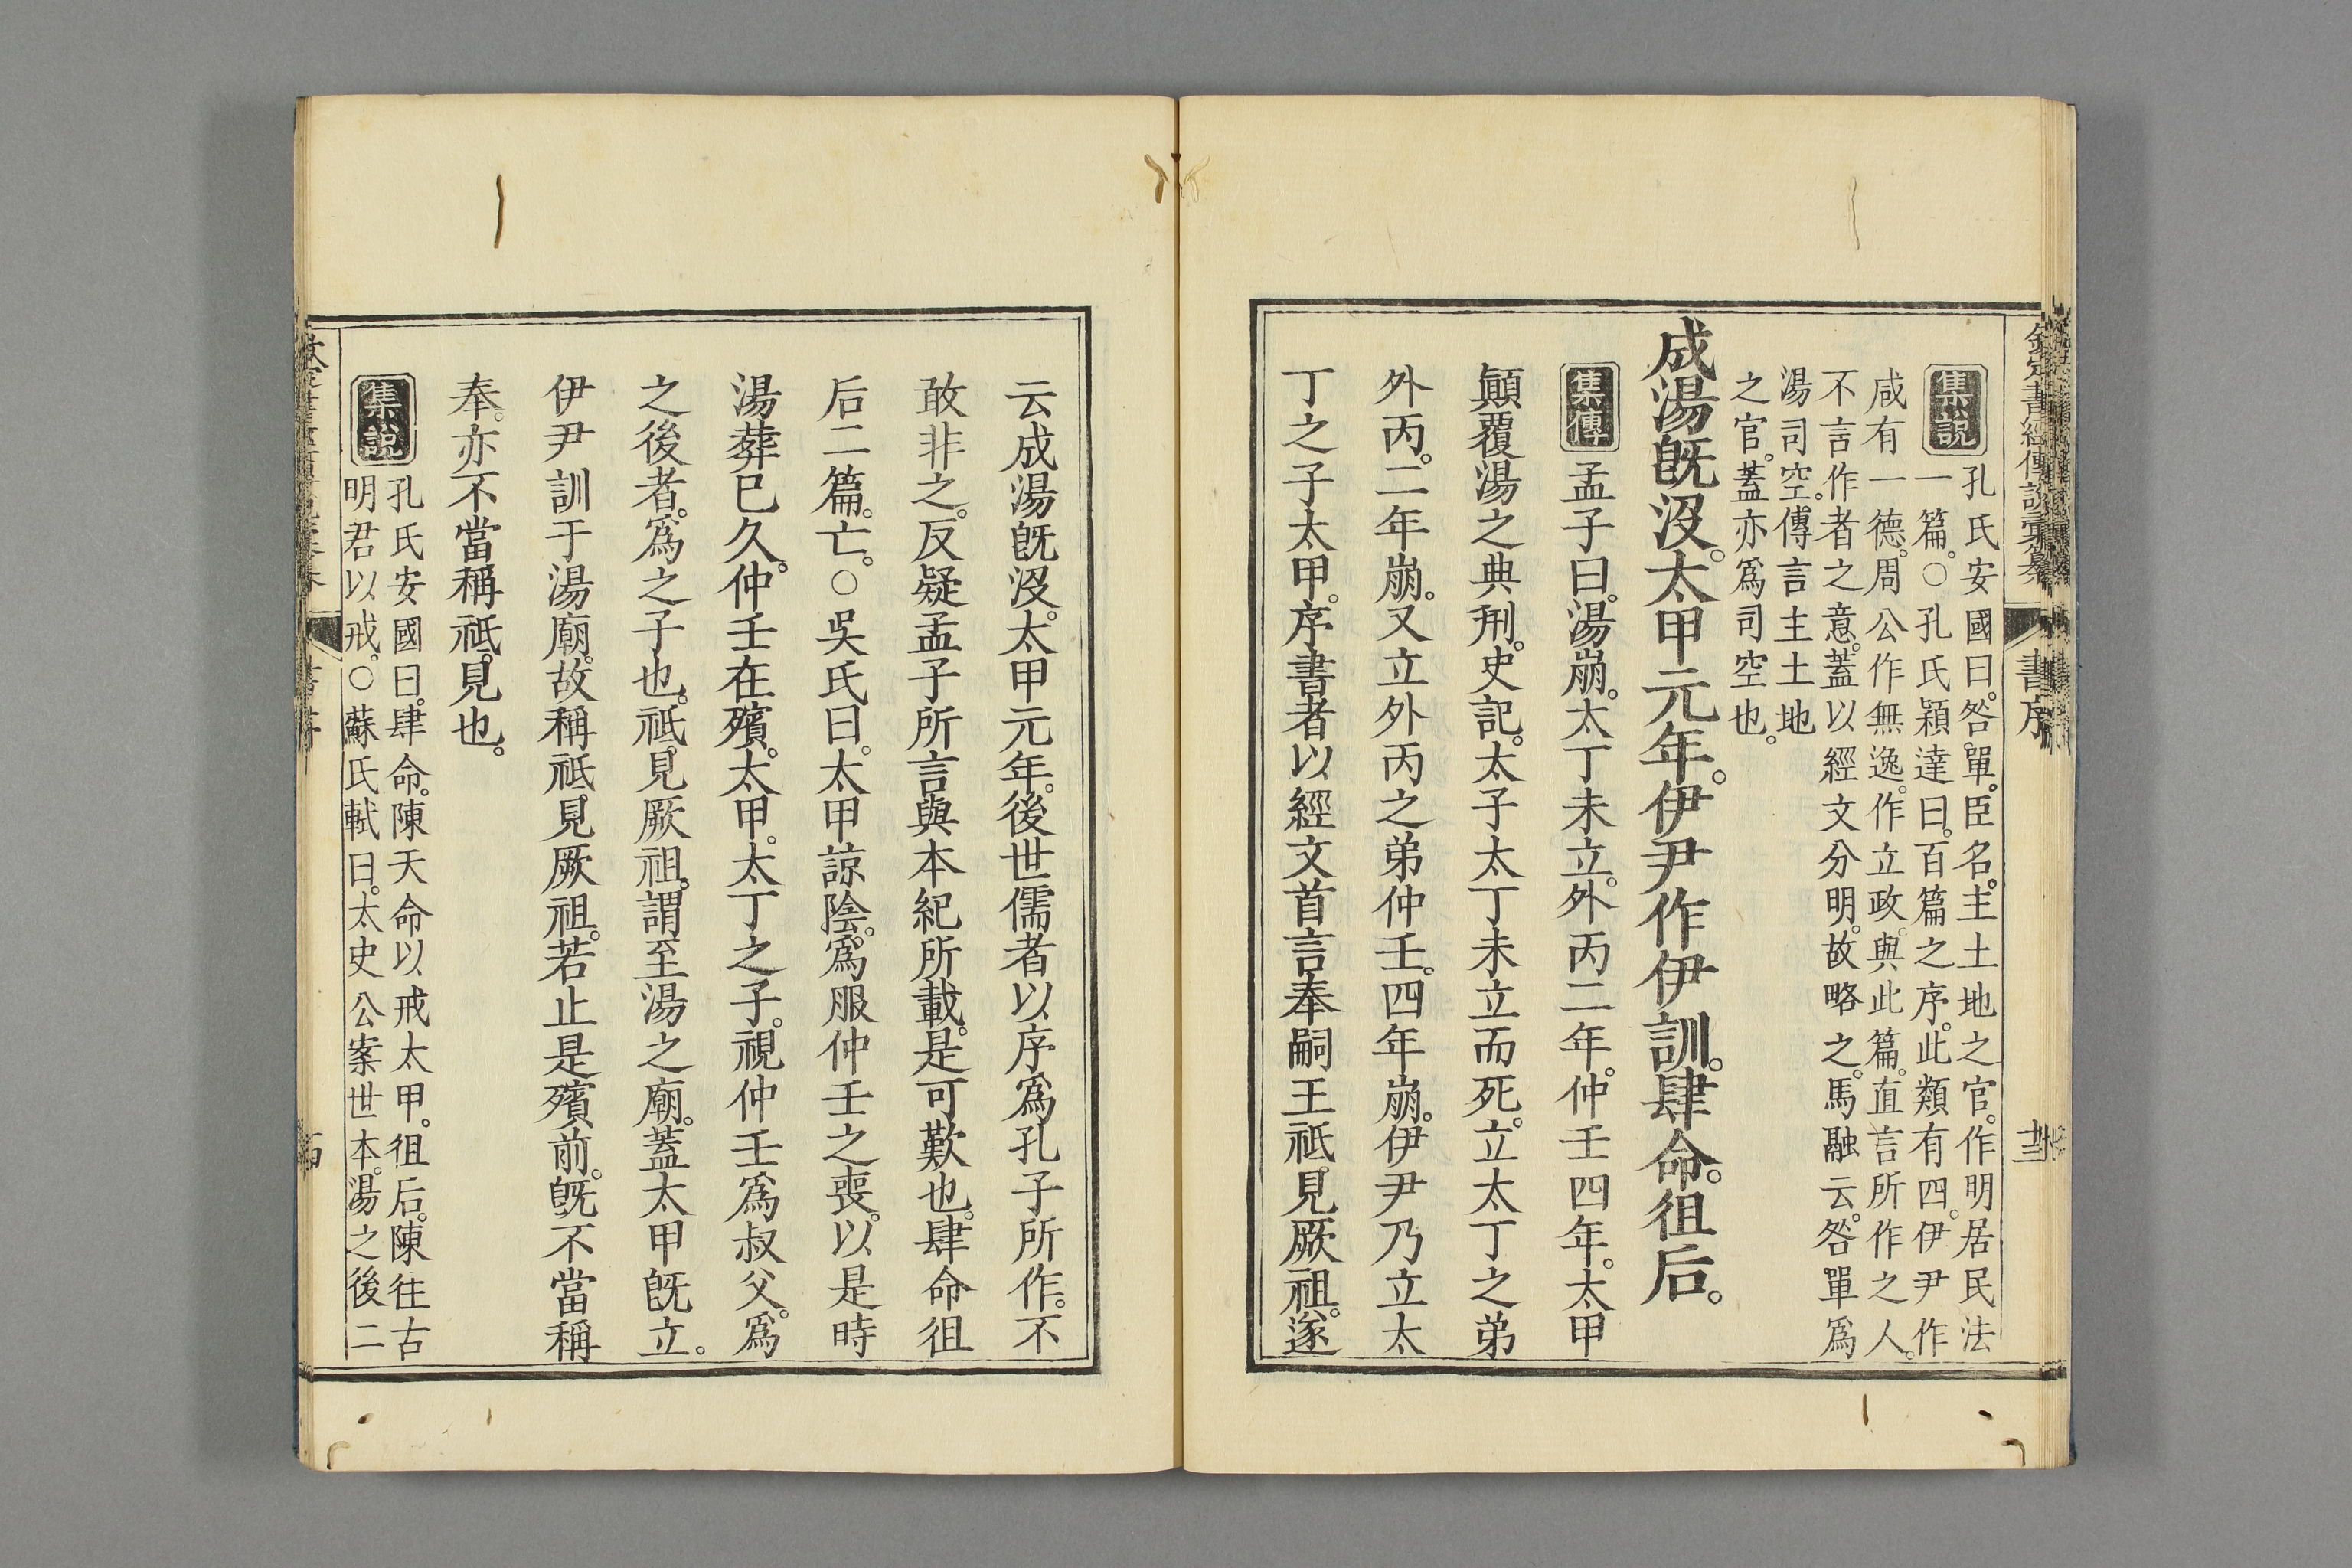 欽定書經傳說彙纂
書序
集說
孔氏安國曰。咎單。臣名。主土地之官。作明居民法
一篇。○孔氏穎達曰。百篇之序。此類有四。伊尹作
咸有一德。周公作無逸。作立政。與此篇。直言所作之人。
不言作者之意。蓋以經文分明。故略之。馬融云。咎單爲
湯司空。傳言主土地
之官。蓋亦爲司空也。
成湯旣沒。太甲元年。伊尹作伊訓。肆命。徂后。
集傳
孟子曰。湯崩。太丁未立。外丙二年。仲壬四年。太甲
顚覆湯之典刑。史記。太子太丁未立而死。立太丁之弟
外丙。二年崩。又立外丙之弟仲壬。四年崩。伊尹乃立太
丁之子太甲。序書者以經文首言奉嗣王祗見厥祖。遂
云成湯旣沒。太甲元年。後世儒者以序爲孔子所作。不
敢非之。反疑孟子所言與本紀所載。是可歎也。肆命徂
后二篇。亡。○吳氏曰。太甲諒陰。爲服仲壬之喪。以是時
湯葬已久。仲壬在殯。太甲。太丁之子。視仲壬爲叔父。爲
之後者。爲之子也。祗見厥祖。謂至湯之廟。蓋太甲旣立。
伊尹訓于湯廟。故稱祗見厥祖。若止是殯前。旣不當稱
奉。亦不當稱祗見也。
集說
孔氏安國曰。肆命。陳天命以戒太甲。徂后。陳往古
明君以戒。○蘇氏軾曰。太史公案世本。湯之後二